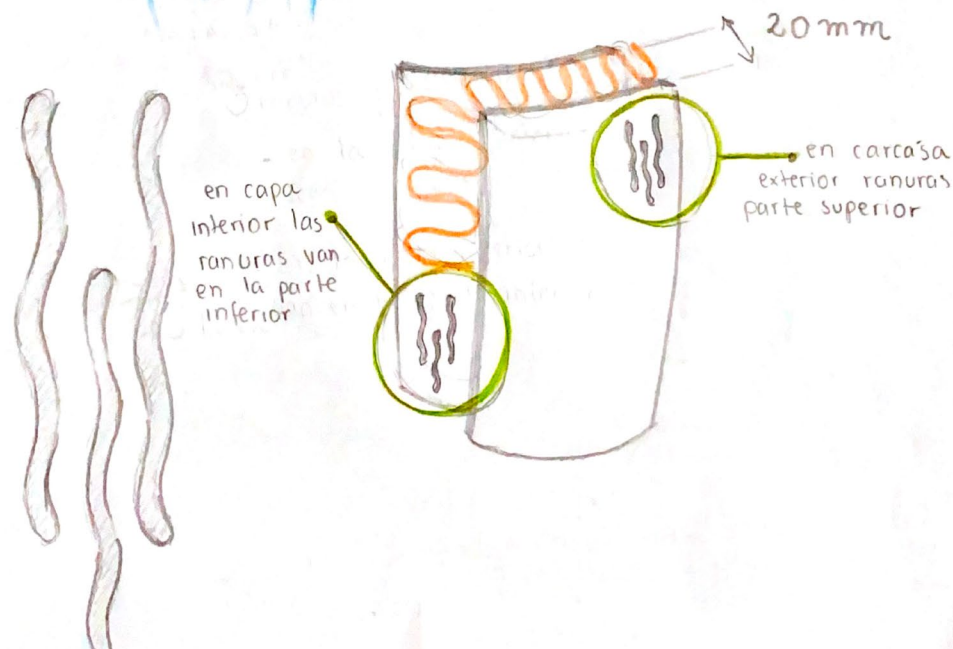 20 mm
en capa
interior las
ranuras van
en la parte
inferior
en carcasa
exterior ranuras
parte superior